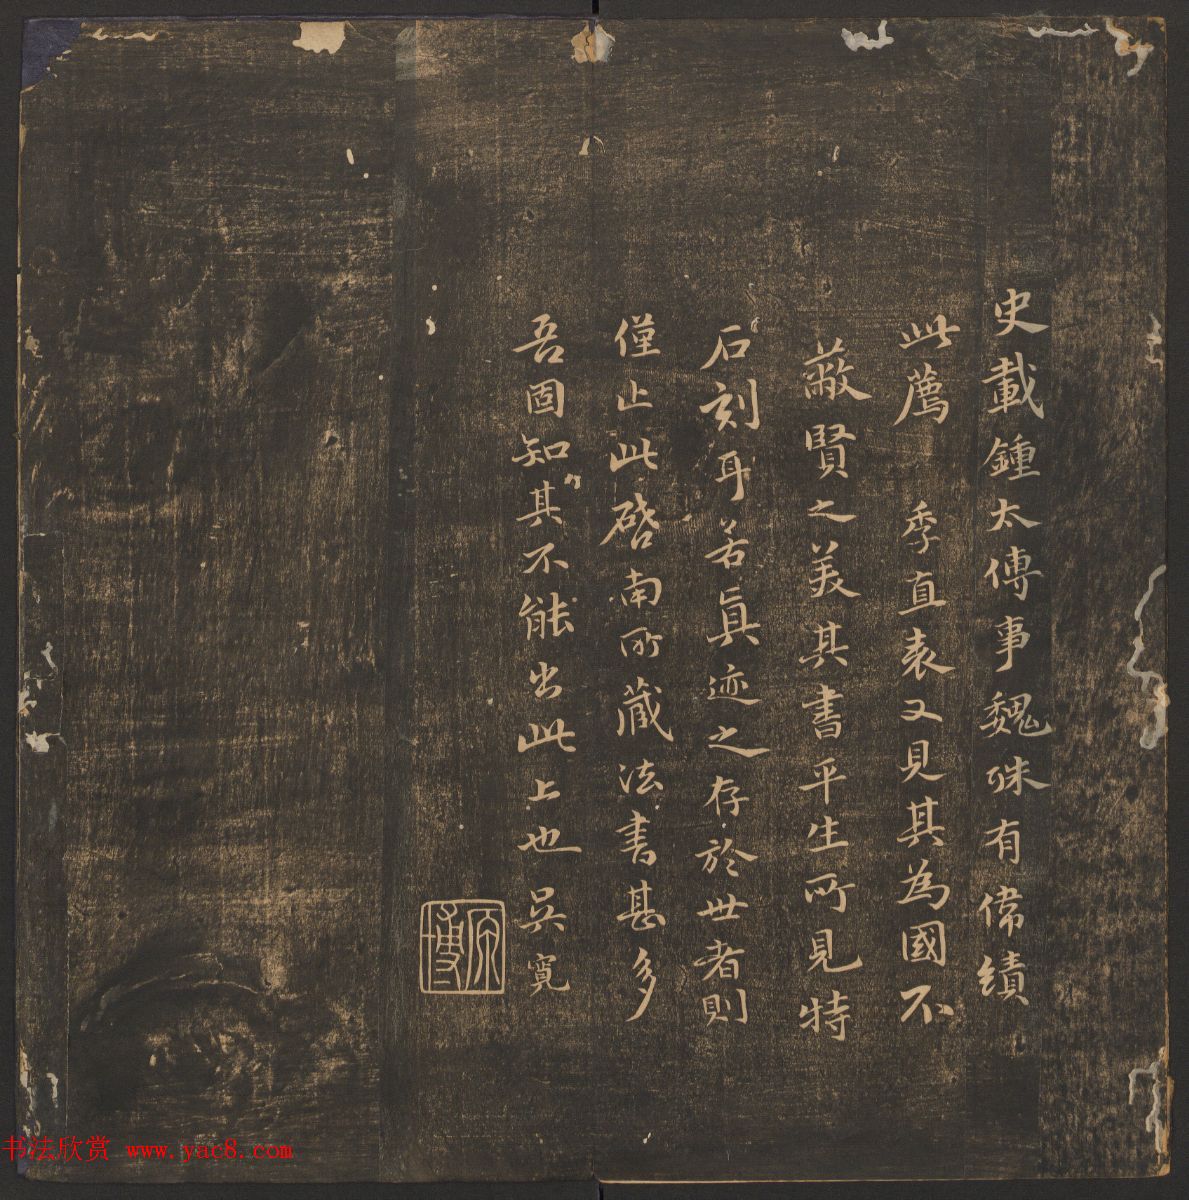 史載鍾太傅事魏殊有偉績
此薦 季直表又見其為國不
蔽賢之美其書平生所見特
石刻耳若眞迹之存於世者則
僅止此啓南所藏法書甚多
吾固知其不能出此上也吳寬
原博
书法欣赏 www.yac8.com